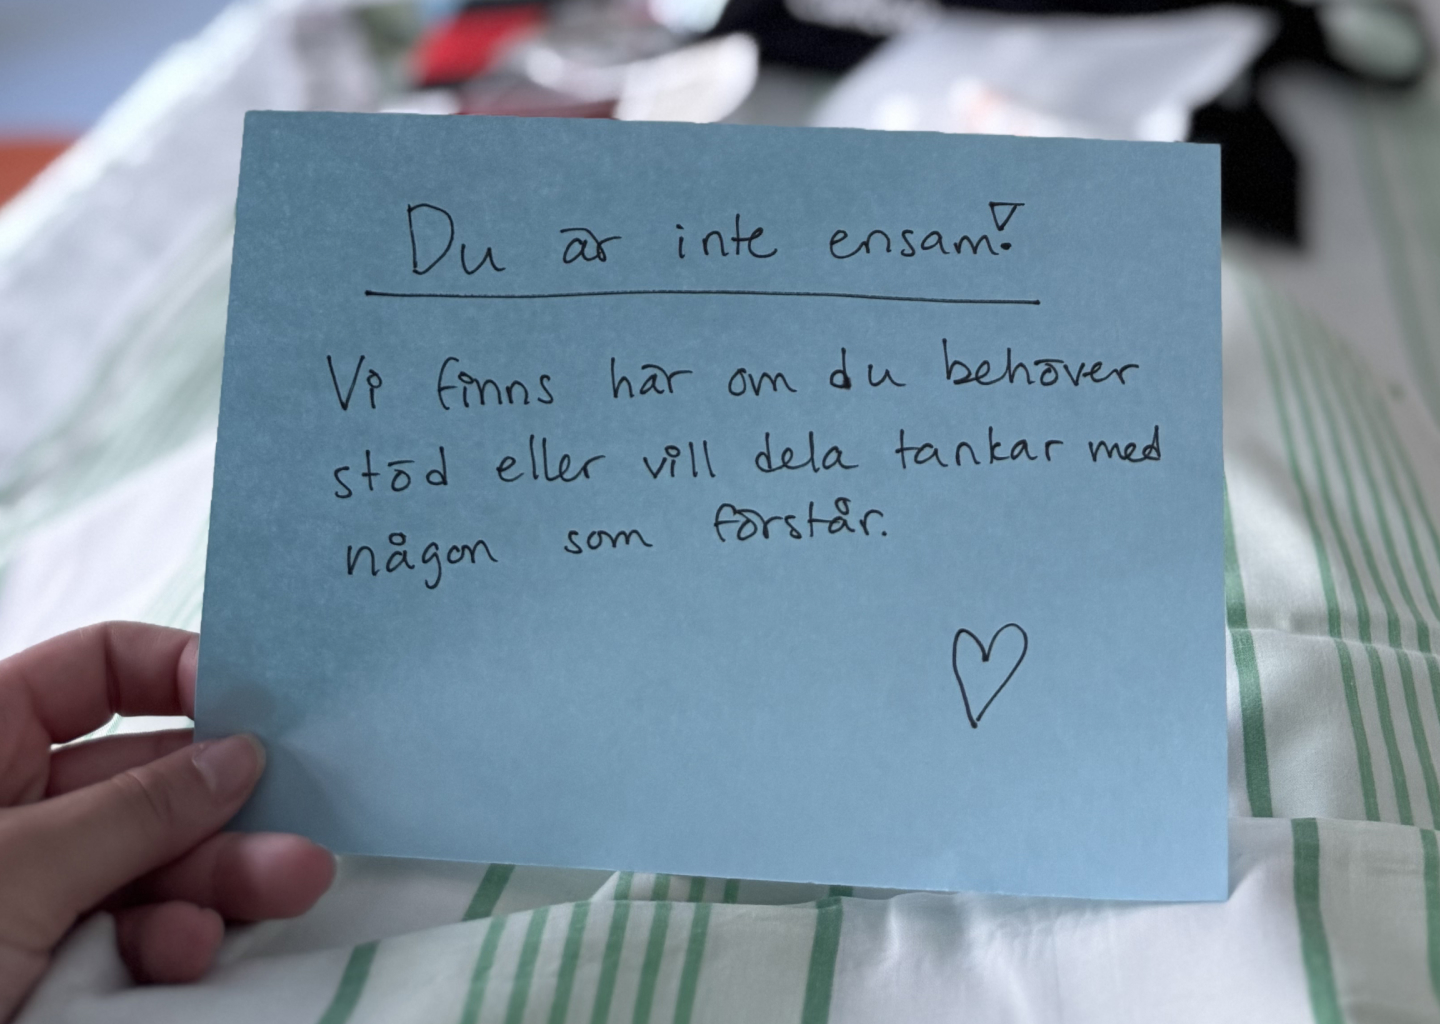 Du är inte ensam!
Vi finns här om du behöver
stöd eller vill dela tankar med
någon som förstår.